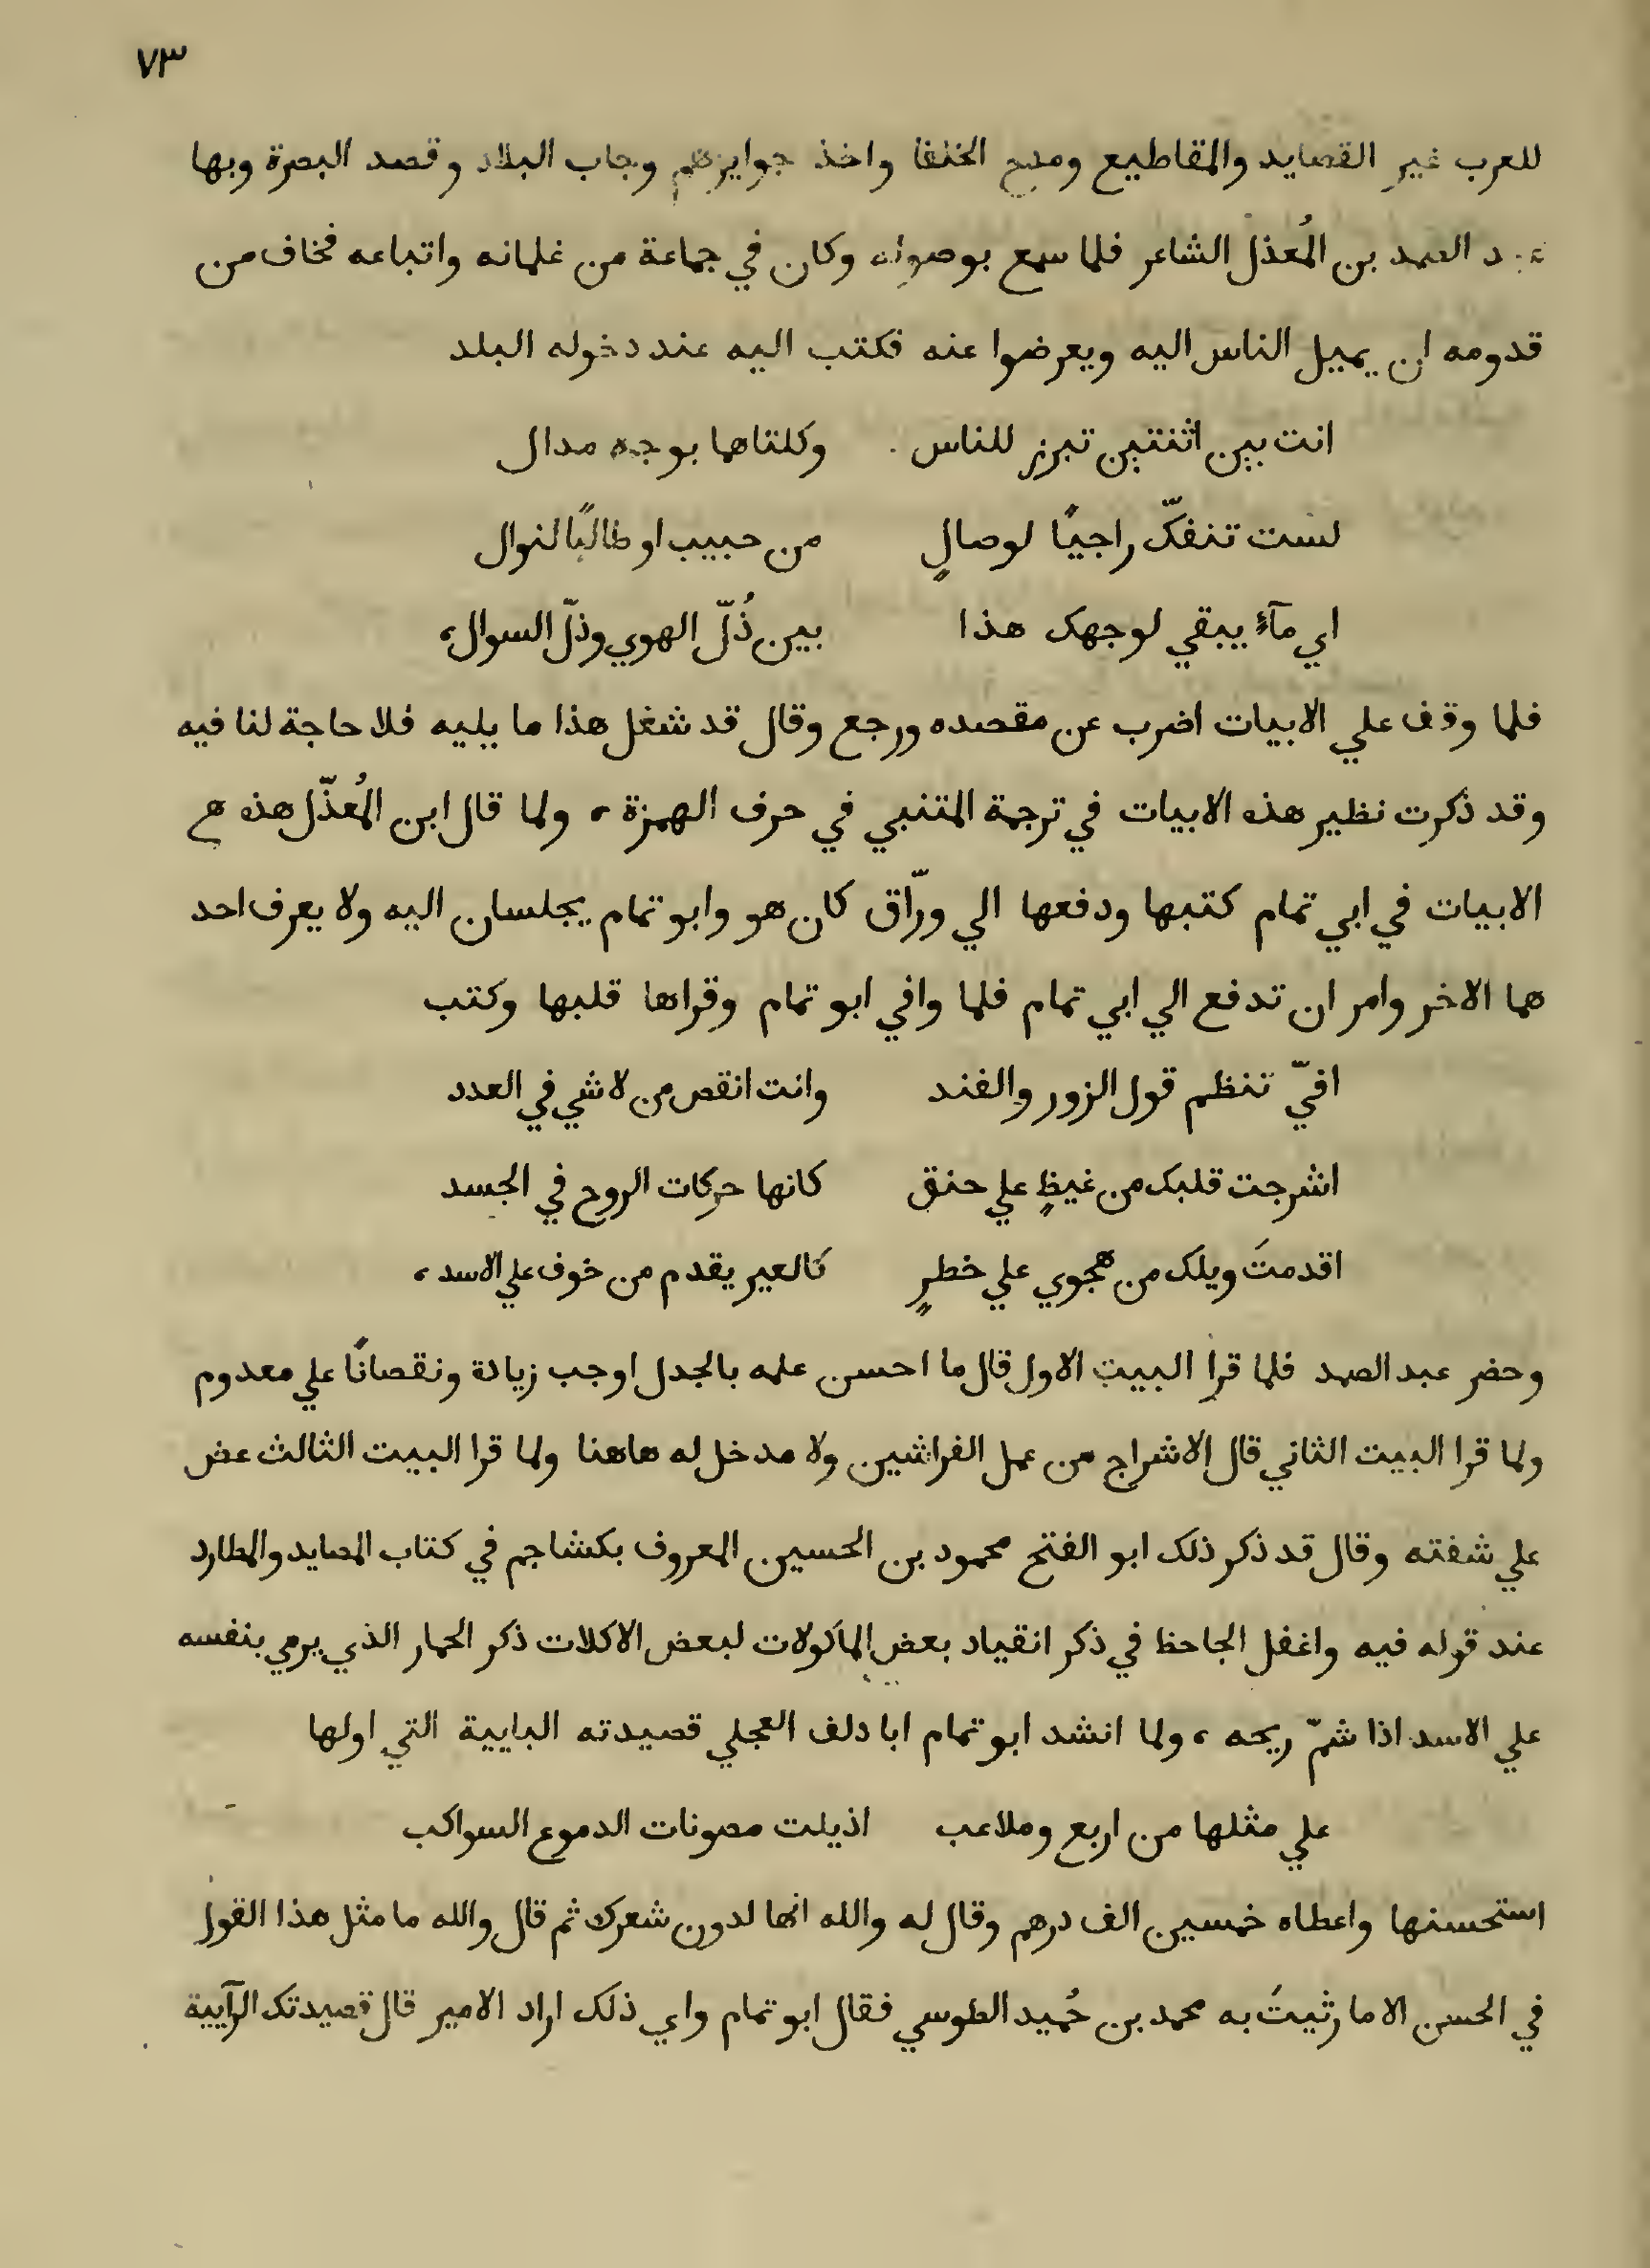 ٧٣
للعرب غير القصايد والمقاطيع ومدح الخلفا واخذ جوايزهم وجاب البلاد وقصد البصرة وبها
عبد الصمد بن المُعذل الشاعر فلما سمع بوصوله وكان في جماعة من غلمانه واتباعه فخاف من
قدومه ان يميل الناس اليه ويعرضوا عنه فكتب اليه عند دخوله البلد
انت بين اثنتين تبرز للناس وكلتاهما بوجه مدال
لست تنفكّ راجيًا لوصالٍ من حبيب او طالبًا لنوال
اي مآءٍ يبقي لوجهك هذا بين ذُلّ الهوي وذلّ السوال،
فلما وقف علي الابيات اضرب عن مقصده ورجع وقال قد شغل هذا ما يليه فلا حاجة لنا فيه
وقد ذكرت نظير هذه الابيات في ترجمة المتنبي في حرف الهمزة، ولما قال ابن المُعذّل هذه
الابيات في ابي تمام كتبها ودفعها الي ورّاق كان هو وابو تمام يجلسان اليه ولا يعرف احد
هما الاخر وامر ان تدفع الي ابي تمام فلما وافي ابو تمام وقراها قلبها وكتب
افيّ تنظم قول الزور والفند وانت انقص من لا شي في العدد
اشرجت قلبك من غيظٍ علي حنق كانها حركات الروح في الجسد
اقدمتَ ويلك من هجوي علي خطرٍ كالعير يقدم من خوف علي الاسد،
وحضر عبد الصمد فلما قرا البيت الاول قال ما احسن علمه بالجدل اوجب زيادة ونقصانًا علي معدوم
ولما قرا البيت الثاني قال الاشراج من عمل الفراشين ولا مدخل له هاهنا ولما قرا البيت الثالث عض
علي شفته وقال قد ذكر ذلك ابو الفتح محمود بن الحسين المعروف بكشاجم في كتاب المصايد والمطارد
عند قوله فيه واغفل الجاحظ في ذكر انقياد بعض الماكولات لبعض الاكلات ذكر الحمار الذي يرمي بنفسه
علي الاسد اذا شمّ ريحه، ولما انشد ابو تمام ابا دلف العجلي قصيدته البايية التي اولها
علي مثلها من اربع وملاعب اذيلت مصونات الدموع السواكب
استحسنها واعطاه خمسين الف درهم وقال له والله انها لدون شعرك ثم قال والله ما مثل هذا القول
في الحسن الا ما رثيتَ به محمد بن حُميد الطوسي فقال ابو تمام واي ذلك اراد الامير قال قصيدتك الرآيية